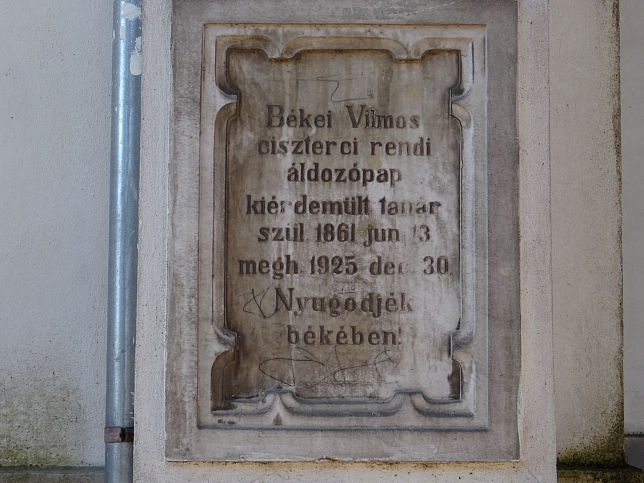 Békei Vilmos
ciszterci rendi
áldozópap
kiérdemült tanár
szül. 1861 jun. 13
megh. 1925 dec. 30.
Nyugodjék
békében!